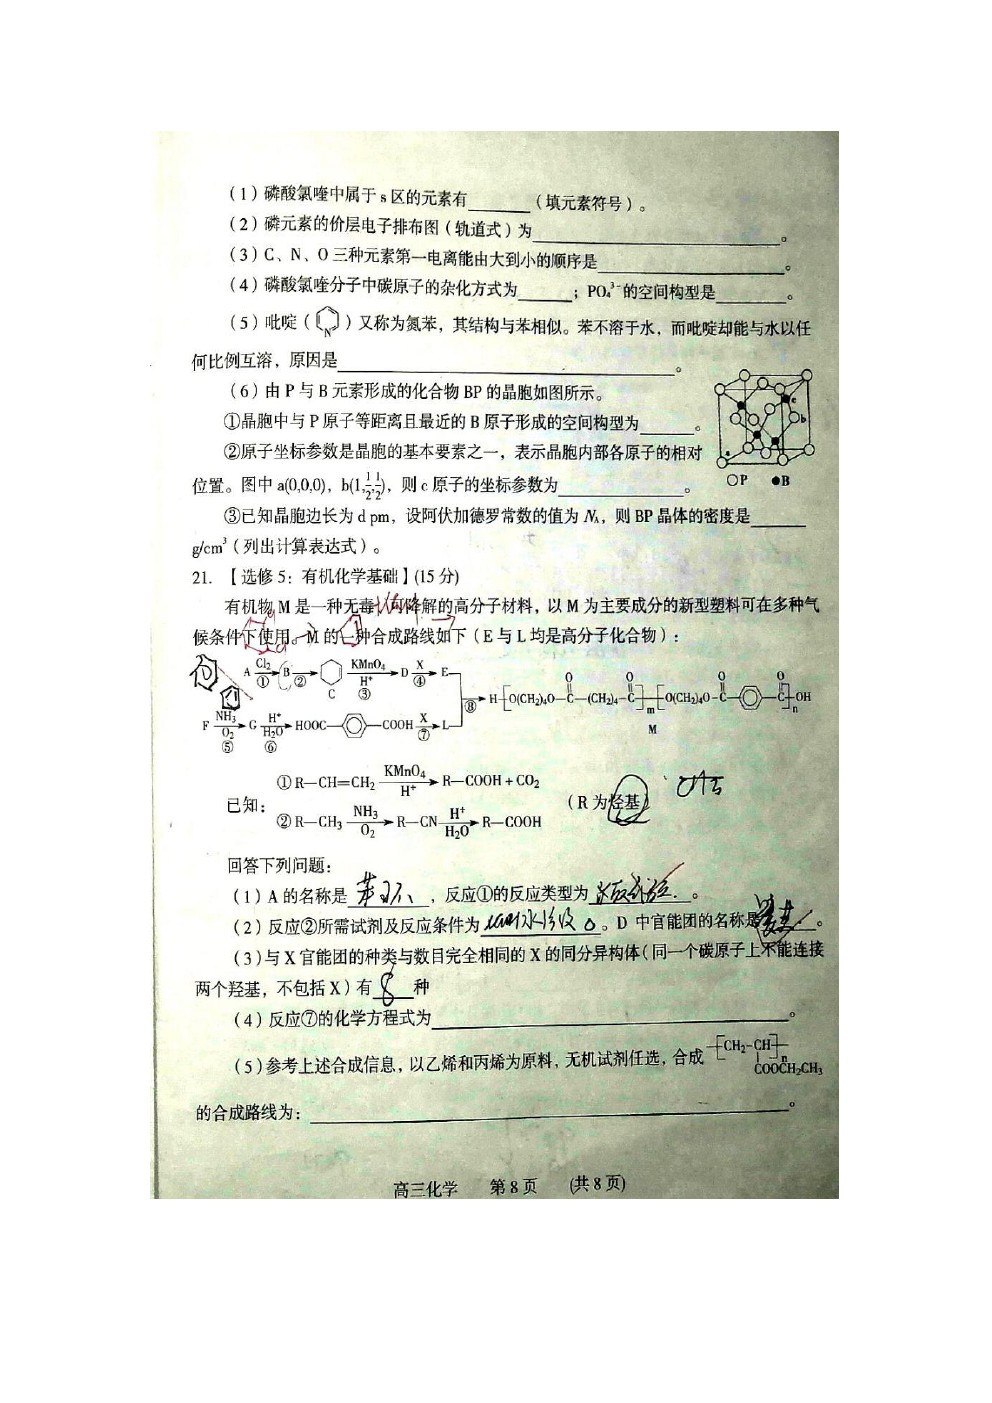 (1)磷酸氯喹中属于s区的元素有______(填元素符号)。
(2)磷元素的价层电子排布图(轨道式)为______。
(3)C、N、O三种元素第一电离能由大到小的顺序是______。
(4)磷酸氯喹分子中碳原子的杂化方式为______;PO₄³⁻的空间构型是______。
(5)吡啶(N)又称为氮苯,其结构与苯相似。苯不溶于水,而吡啶却能与水以任
何比例互溶,原因是______。
(6)由P与B元素形成的化合物BP的晶胞如图所示。
①晶胞中与P原子等距离且最近的B原子形成的空间构型为______。
②原子坐标参数是晶胞的基本要素之一,表示晶胞内部各原子的相对
位置。图中a(0,0,0),b(1,1/2,1/2),则c原子的坐标参数为______。
a b c
○P ●B
③已知晶胞边长为d pm,设阿伏加德罗常数的值为NA,则BP晶体的密度是______
g/cm³(列出计算表达式)。
21.【选修5:有机化学基础】(15分)
有机物M是一种无毒 可降解的高分子材料,以M为主要成分的新型塑料可在多种气
候条件下使用。M的一种合成路线如下(E与L均是高分子化合物):
A Cl₂ ① B ② C KMnO₄ H⁺ ③ D X ④ E
⑧ H[O(CH₂)₄O-C(O)-(CH₂)₄-C(O)]m[O(CH₂)₄O-C(O)-C(O)]nOH
F NH₃ O₂ ⑤ G H⁺ H₂O ⑥ HOOC- -COOH X ⑦ L
M
已知:
①R—CH=CH₂ KMnO₄ H⁺ R—COOH + CO₂
(R为烃基)
②R—CH₃ NH₃ O₂ R—CN H⁺ H₂O R—COOH
回答下列问题:
(1)A的名称是______,反应①的反应类型为______。
(2)反应②所需试剂及反应条件为______。D中官能团的名称是______。
(3)与X官能团的种类与数目完全相同的X的同分异构体(同一个碳原子上不能连接
两个羟基,不包括X)有 8 种
(4)反应⑦的化学方程式为______。
(5)参考上述合成信息,以乙烯和丙烯为原料,无机试剂任选,合成[CH₂-CH]n COOCH₂CH₃
的合成路线为:______。
高三化学 第8页 (共8页)